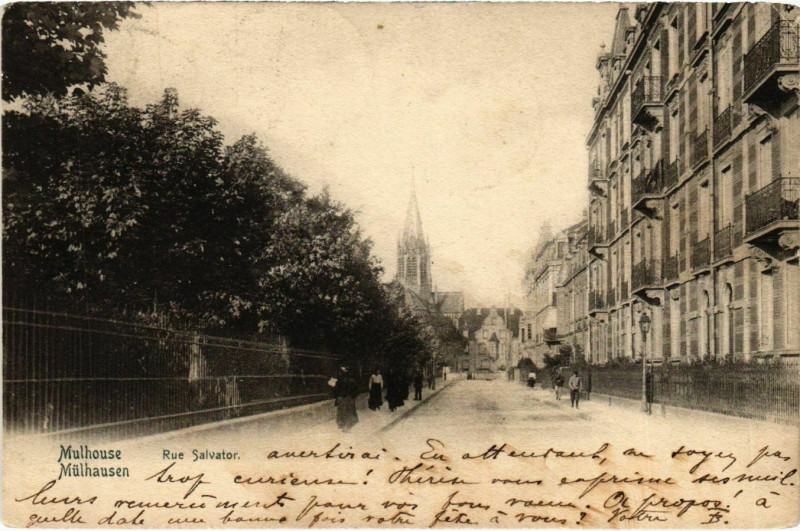 Mulhouse
Mülhausen
Rue Salvator.
avertirai. En attendant, ne soyez pas
trop curieuse! Thérèse vous exprime ses meil-
leurs remerciments pour vos bons vœux. A propos! à
quelle date une bonne fois votre fête à vous? Votre